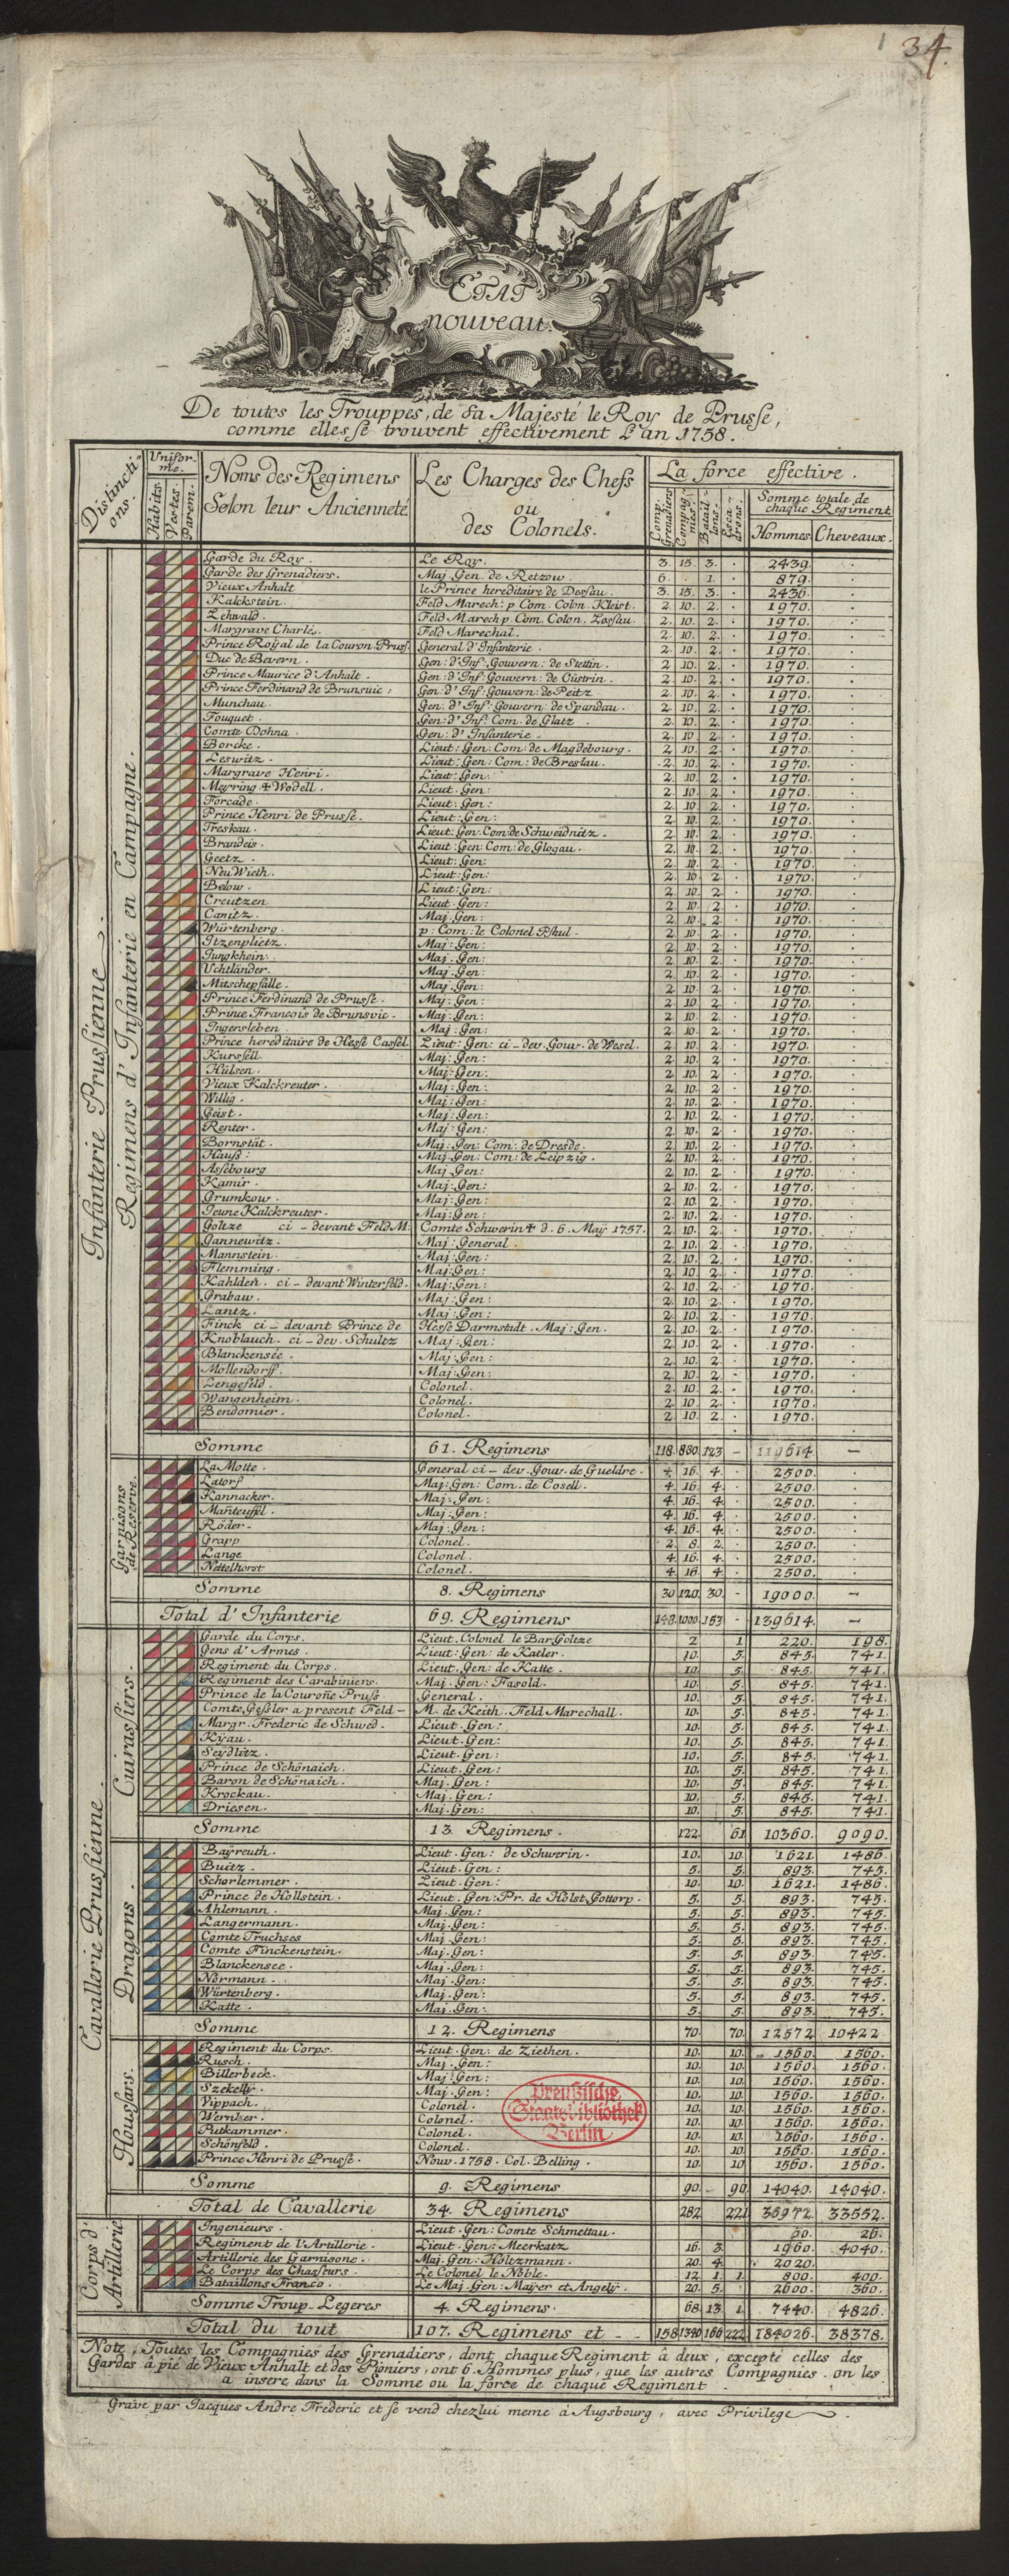 34.
ETAT
nouveau.
De toutes les Trouppes, de Sa Majesté le Roy de Prusse,
comme elles se trouvent effectivement L'an 1758.
Distinctions.
Uniforme.
Habits. Vestes. Parem.
Noms des Regimens
Selon leur Ancienneté
Les Charges des Chefs
ou
des Colonels.
La force effective.
Comp. Grenadiers
Compagnies.
Bataillons.
Escadrons.
Somme totale de
chaque Regiment
Hommes Cheveaux.
Infanterie Prussienne.
Regimens d'Infanterie en Campagne.
Garde du Roy. Le Roy. 3. 15. 3. . 2439.
Garde des Grenadiers. Maj. Gen. de Retzow. 6. . 1. . 879.
Vieux Anhalt le Prince hereditaire de Dessau. 3. 15. 3. . 2436.
Kalckstein. Feld Marech: p Com. Colon. Kleist. 2. 10. 2. . 1970.
Lehwald. Feld Marech p. Com. Colon. 2. 10. 2. . 1970.
Margrave Charles. Feld Marechal. 2. 10. 2. . 1970.
Prince Royal de la Couron. Pruss. General d'Infanterie. 2. 10. 2. . 1970.
Duc de Bevern. Gen: d'Inf: Gouvern: de Stettin. 2. 10. 2. . 1970.
Prince Maurice d'Anhalt. Gen: d'Inf: Gouvern: de Cüstrin. 2. 10. 2. . 1970.
Prince Ferdinand de Brunsuic. Gen: d'Inf: Gouvern: de Peitz 2. 10. 2. . 1970.
Munchau. Gen. d'Inf: Gouvern: de Spandau. 2. 10. 2. . 1970.
Fouquet. Gen: d'Inf: Com. de Glatz. 2. 10. 2. . 1970.
Comte Dohna. Gen: d'Infanterie. 2. 10. 2. . 1970.
Borcke. Lieut: Gen: Com: de Magdebourg. 2. 10. 2. . 1970.
Leswitz. Lieut: Gen: Com: de Breslau. 2. 10. 2. . 1970.
Margrave Henri. Lieut: Gen: 2. 10. 2. . 1970.
Meyring + Wedell. Lieut. Gen: 2. 10. 2. . 1970.
Forcade. Lieut: Gen: 2. 10. 2. . 1970.
Prince Henri de Prusse. Lieut: Gen: 2. 10. 2. . 1970.
Treskau. Lieut: Gen: Com: de Schweidnitz. 2. 10. 2. . 1970.
Brandeis. Lieut: Gen: Com: de Glogau. 2. 10. 2. . 1970.
Geetz. Lieut: Gen: 2. 10. 2. . 1970.
Neu Wieth. Lieut: Gen: 2. 10. 2. . 1970.
Below. Lieut: Gen: 2. 10. 2. . 1970.
Creutzen Lieut: Gen: 2. 10. 2. . 1970.
Canitz. Maj. Gen: 2. 10. 2. . 1970.
Würtenberg. p: Com: le Colonel 2. 10. 2. . 1970.
Itzenplietz. Maj: Gen: 2. 10. 2. . 1970.
Jungkhein. Maj. Gen: 2. 10. 2. . 1970.
Uchtländer. Maj. Gen: 2. 10. 2. . 1970.
Mitschepfalle. Maj. Gen: 2. 10. 2. . 1970.
Prince Ferdinand de Prusse. Maj: Gen: 2. 10. 2. . 1970.
Prince Francois de Brunsvic. Maj: Gen: 2. 10. 2. . 1970.
Ingersleben. Maj: Gen: 2. 10. 2. . 1970.
Prince hereditaire de Hesse Cassel. Lieut: Gen: ci-dev. Gouv. de Wesel. 2. 10. 2. . 1970.
Kurssell. Maj: Gen: 2. 10. 2. . 1970.
Hülsen. Maj: Gen: 2. 10. 2. . 1970.
Vieux Kalckreuter. Maj: Gen: 2. 10. 2. . 1970.
Willig. Maj: Gen: 2. 10. 2. . 1970.
Geist. Maj: Gen: 2. 10. 2. . 1970.
Renter. Maj: Gen: 2. 10. 2. . 1970.
Bornstät. Maj: Gen: Com: de Dresde. 2. 10. 2. . 1970.
Hauss: Maj: Gen: Com: de Leipzig. 2. 10. 2. . 1970.
Assebourg Maj Gen: 2. 10. 2. . 1970.
Kamir. Maj: Gen: 2. 10. 2. . 1970.
Grumkow. Maj: Gen: 2. 10. 2. . 1970.
Jeune Kalckreuter. Maj: Gen: 2. 10. 2. . 1970.
Goltze ci-devant Feld M. Comte Schwerin + d. 6. Maÿ 1757. 2. 10. 2. . 1970.
Gannewitz. Maj: General. 2. 10. 2. . 1970.
Mannstein. Maj: Gen: 2. 10. 2. . 1970.
Flemming. Maj: Gen: 2. 10. 2. . 1970.
Kahlden. ci-devant Winterfeld. Maj: Gen: 2. 10. 2. . 1970.
Grabaw. Maj: Gen: 2. 10. 2. . 1970.
Lantz. Maj: Gen: 2. 10. 2. . 1970.
Finck ci-devant Prince de Hess Darmstadt. Maj: Gen. 2. 10. 2. . 1970.
Knoblauch. ci-dev. Schultz Maj: Gen: 2. 10. 2. . 1970.
Blanckensée. Maj: Gen: 2. 10. 2. . 1970.
Mollendorff. Maj: Gen: 2. 10. 2. . 1970.
Lengefeld. Colonel. 2. 10. 2. . 1970.
Wangenheim. Colonel. 2. 10. 2. . 1970.
Bendomier. Colonel. 2. 10. 2. . 1970.
Somme 61. Regimens 118. 880. 123 — 119614. —
Garnisons de Reserve.
La Motte. General ci-dev. Gouv. de Gueldre. 4. 16. 4. . 2500.
Latorf Maj: Gen: Com. de Cosell. 4. 16. 4. . 2500.
Kannacker. Maj: Gen: 4. 16. 4. . 2500.
Manteuffel. Maj: Gen: 4. 16. 4. . 2500.
Röder. Maj: Gen: 4. 16. 4. . 2500.
Grapp Colonel. 2. 8. 2. . 2500.
Lange Colonel. 4. 16. 4. . 2500.
Nettelhorst Colonel. 4. 16. 4. . 2500.
Somme 8. Regimens 30. 120. 30. - 19000. —
Total d'Infanterie 69. Regimens 148. 1000. 153 - 139614. —
Cavallerie Prussienne.
Cuirassiers.
Garde du Corps. Lieut. Colonel le Bar. Goltze 2 1 220. 198.
Gens d'Armes. Lieut: Gen: de Katler. 10. 5. 845. 741.
Regiment du Corps. Lieut. Gen: de Katte. 10. 5. 845. 741.
Regiment des Carabiniens. Maj. Gen: Fasold. 10. 5. 845. 741.
Prince de la Courone Pruss General. 10. 5. 845. 741.
Comte Gessler a present Feld-M. de Keith. Feld Marechall. 10. 5. 845. 741.
Margr. Frederic de Schwed. Lieut. Gen: 10. 5. 845. 741.
Kÿau. Lieut. Gen: 10. 5. 845. 741.
Seÿdlitz. Lieut. Gen: 10. 5. 845. 741.
Prince de Schönaich. Lieut: Gen: 10. 5. 845. 741.
Baron de Schönaich. Maj. Gen: 10. 5. 845. 741.
Krockau. Maj. Gen: 10. 5. 845. 741.
Driesen. Maj. Gen: 10. 5. 845. 741.
Somme 13. Regimens. 122. 61 10360. 9090.
Dragons.
Baÿreuth. Lieut. Gen: de Schwerin. 10. 10. 1621. 1486.
Buitz. Lieut. Gen: 5. 5. 893. 745.
Schorlemmer. Lieut. Gen: 10. 10. 1621. 1486.
Prince de Hollstein. Lieut. Gen: Pr. de Holst Gottorp. 5. 5. 893. 745.
Ahlemann. Maj. Gen: 5. 5. 893. 745.
Langermann. Maj. Gen: 5. 5. 893. 745.
Comte Truchses Maj. Gen: 5. 5. 893. 745.
Comte Finckenstein. Maj. Gen: 5. 5. 893. 745.
Blanckensee. Maj. Gen: 5. 5. 893. 745.
Normann. Maj. Gen: 5. 5. 893. 745.
Würtenberg. Maj. Gen: 5. 5. 893. 745.
Katte. Maj. Gen: 5. 5. 893. 745.
Somme 12. Regimens 70. 70. 12572 10422
Houssars.
Regiment du Corps. Lieut. Gen: de Ziethen. 10. 10. 1560. 1560.
Rusch. Maj. Gen: 10. 10. 1560. 1560.
Billerbeck. Maj. Gen: 10. 10. 1560. 1560.
Szekellÿ. Maj. Gen: 10. 10. 1560. 1560.
Vippach. Colonel. 10. 10. 1560. 1560.
Wernher. Colonel. 10. 10. 1560. 1560.
Putkammer. Colonel. 10. 10. 1560. 1560.
Schönfeld. Colonel. 10. 10. 1560. 1560.
Prince Henri de Prusse. Nouv. 1758. Col. Belling. 10. 10 1560. 1560.
Preußische
Staatsbibliothek
Berlin
Somme 9. Regimens 90. - 90 14040. 14040.
Total de Cavallerie 34. Regimens 282 221 36972. 33552.
Corps d'Artillerie
Ingenieurs. Lieut. Gen: Comte Schmettau. 60. 26.
Regiment de l'Artillerie. Lieut. Gen: Meerkatz 16. 3. 1960. 4040.
Artillerie des Garnisons. Maj. Gen: Holtzmann. 20. 4. 2020.
Le Corps des Chasseurs. Le Colonel le Noble. 12 1 1 800. 400.
Bataillons Franco. Le Maj. Gen: Maÿer et Angelÿ. 20. 5. 2600. 360.
Somme Troup-Legeres 4. Regimens. 68. 13 1. 7440. 4826.
Total du tout 107. Regimens et - - 158 1340 166 222 184026. 38378.
Note, Toutes les Compagnies des Grenadiers, dont chaque Regiment à deux, excepté celles des
Gardes à pié de Vieux Anhalt et des Pioniers, ont 6. Hommes plus, que les autres Compagnies. on les
a insere dans la Somme ou la force de chaque Regiment
Grave par Jacques Andre Frederic et se vend chez lui meme à Augsbourg, avec Privilege.